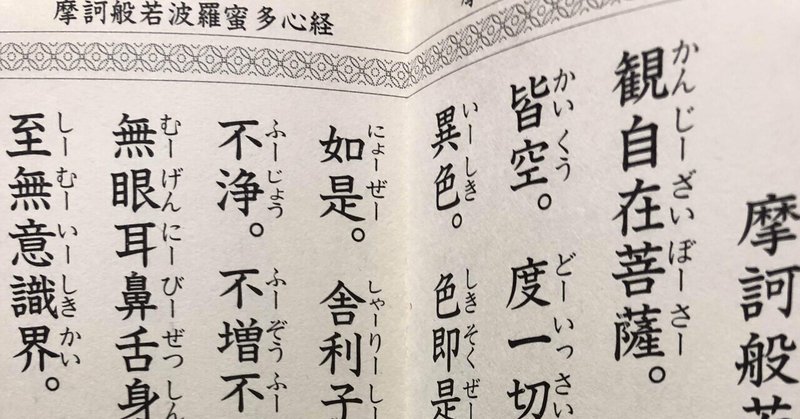 摩訶般若波羅蜜多心経
摩訶般若
かんじーざいぼーさー
観自在菩薩。
かいくう どーいっさい
皆空。度一切
いーしき しきそくぜー
異色。色即是
にょーぜー しゃーりーしー
如是。舎利子
ふーじょう ふーぞうふー
不浄。不増不
むーげんにーびーぜつしん
無眼耳鼻舌身
しーむーいーしきかい
至無意識界。